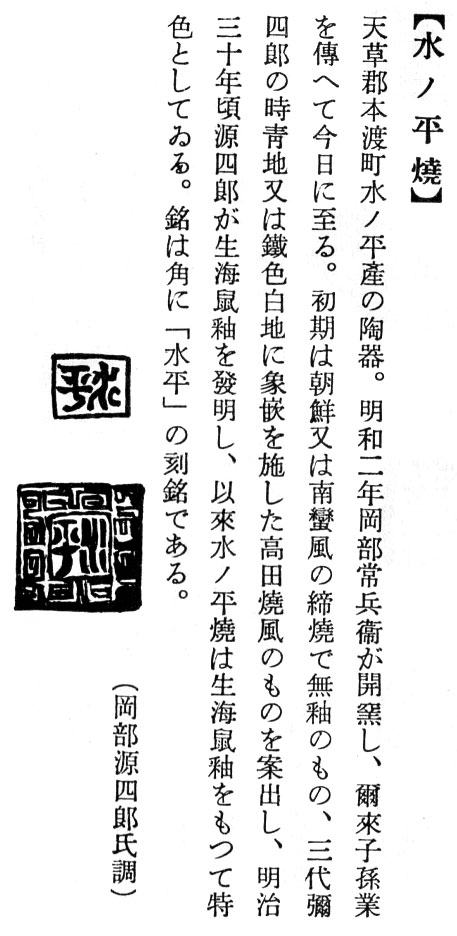 【水ノ平燒】
天草郡本渡町水ノ平產の陶器。明和二年岡部常兵衞が開窯し、爾來子孫業
を傳へて今日に至る。初期は朝鮮又は南蠻風の締燒で無釉のもの、三代彌
四郎の時靑地又は鐵色白地に象嵌を施した高田燒風のものを案出し、明治
三十年頃源四郎が生海鼠釉を發明し、以來水ノ平燒は生海鼠釉をもつて特
色としてゐる。銘は角に「水平」の刻銘である。
水平
(岡部源四郎氏調)